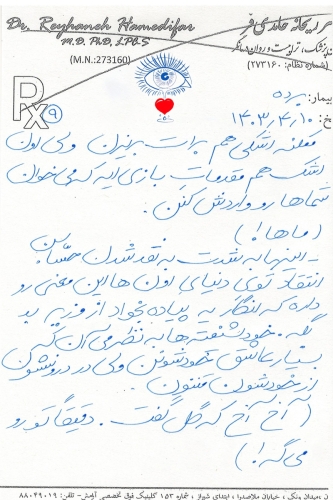 Dr. Reyhaneh Hamedifar
M.D, PhD, LPC-S
(M.N.:273160)
(شماره نظام: ۲۷۳۱۶۰)
Rx ۹
بیمار: پرده
خ: ۱۴۰۳/۴/۱۰
ممکنه اشکی هم برات بریزن ولی اون
اشک هم مقدمات بازی ایه که می‌خوان
شما رو واردش کنن.
(ماها!)
- اینها به شدت به نقد شدن حساسن
انتقاد توی دنیای اون‌ها این معنی رو
داره که انگار به پیاده بخواد از فرزیه بد
بگه. خودشیفته‌ها به نظر می‌آن که
بسیار عاشق خودشونن ولی در درونشون
از خودشون متنفرن.
(آخ آخ که گل گفت. دقیقاً تو رو
می‌گه!)